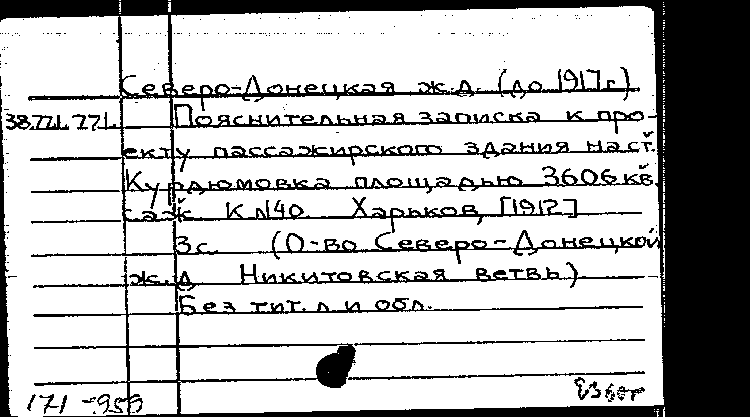 Северо-Донецкая ж.д. (до 1917г.)
Пояснительная записка к про-
екту пассажирского здания на ст.
Курдюмовка площадью 36 06 кв.
саж К №40. Харьков, [1912]
3с. (О-во Северо-Донецкой
ж.д Никитовская ветвь)
Без тит. л и обл.
171 -959